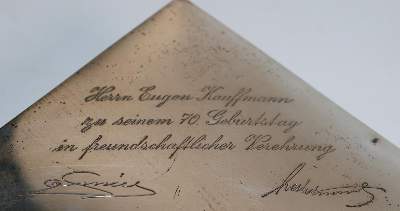 Herrn Eugen Kauffmann
zu seinem 70. Geburtstag
in freundschaftlicher Verehrung